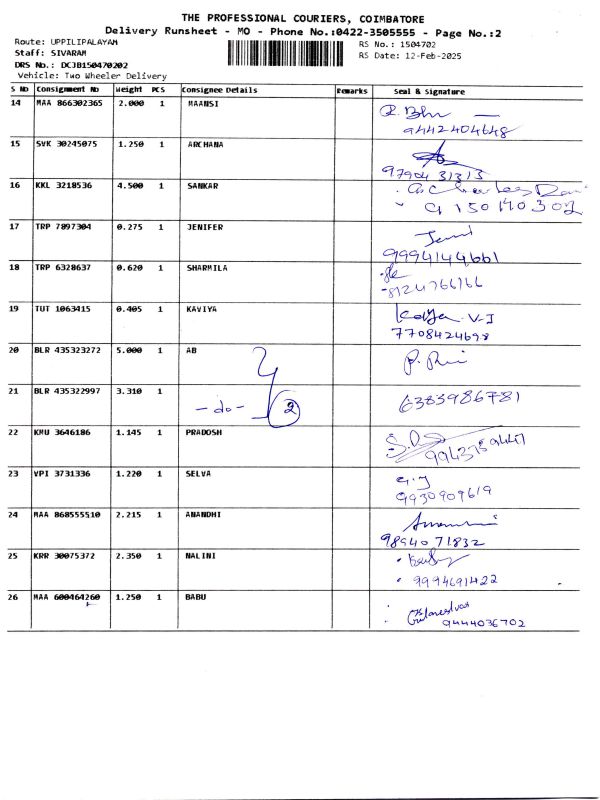 THE PROFESSIONAL COURIERS, COIMBATORE
Delivery Runsheet - MO - Phone No.:0422-3505555 - Page No.:2
Route: UPPILIPALAYAM
Staff: SIVARAM
DRS No.: DCJB150470202
Vehicle: Two Wheeler Delivery
RS No.: 1504702
RS Date: 12-Feb-2025
S No Consignment No Weight PCS Consignee Details Remarks Seal & Signature
14 MAA 866302365 2.000 1 MAANSI
9442404648
15 SVK 30245075 1.250 1 ARCHANA
97904 31313
16 KKL 3218536 4.500 1 SANKAR
17 TRP 7897304 0.275 1 JENIFER
9994144661
18 TRP 6328637 0.620 1 SHARMILA
8124766166
19 TUT 1063415 0.405 1 KAVIYA
V-I
7708424698
20 BLR 435323272 5.000 1 AB
21 BLR 435322997 3.310 1
- do - 2 6383986781
22 KMU 3646186 1.145 1 PRADOSH
23 VPI 3731336 1.220 1 SELVA
9930909619
24 MAA 868555510 2.215 1 ANANDHI
9894071832
25 KRR 30075372 2.350 1 NALINI
9994691422
26 MAA 600464260 1.250 1 BABU
9444036702